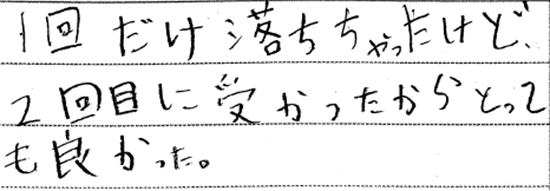 1回だけ落ちちゃったけど、
2回目に受かったからとって
も良かった。